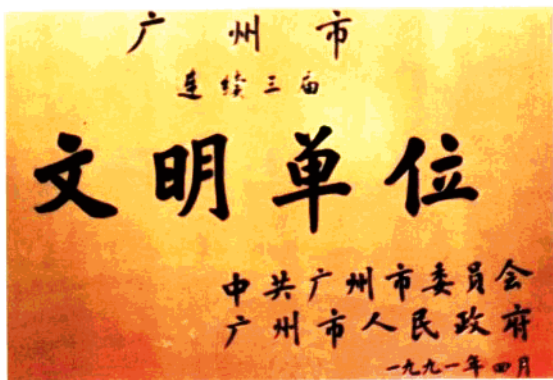 广州市
连续三届
文明单位
中共广州市委员会
广州市人民政府
一九九一年四月